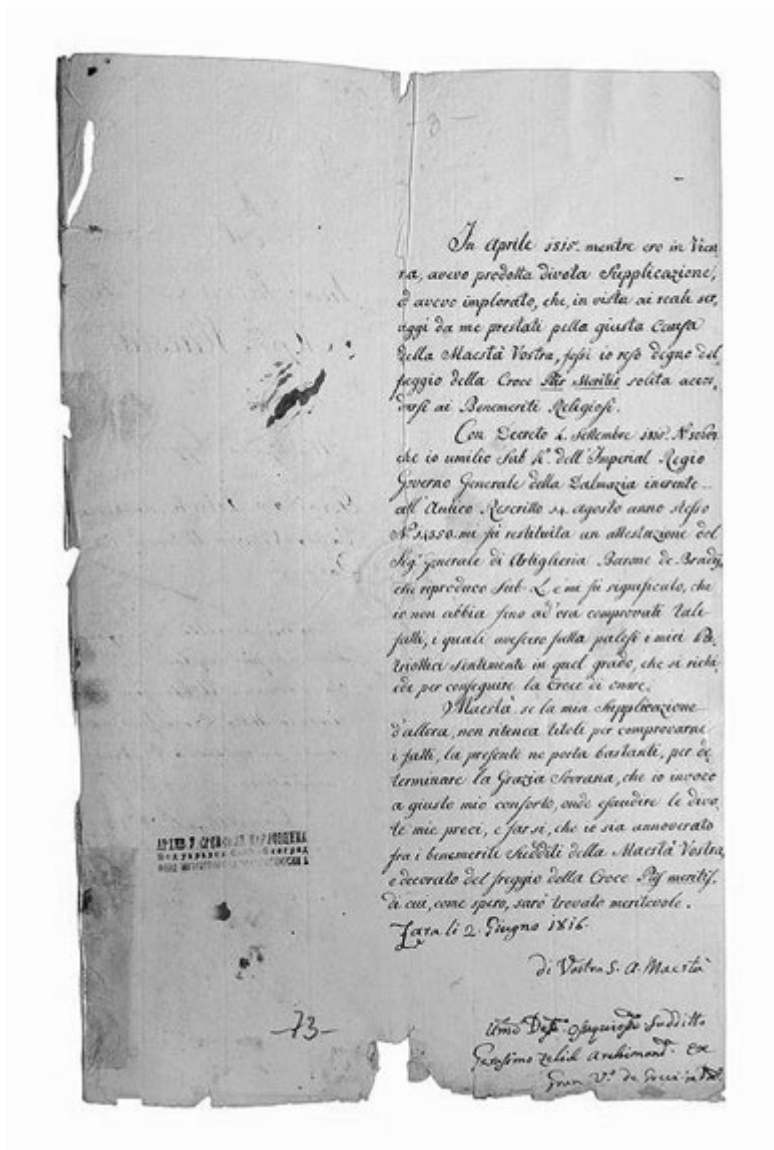 3
In Aprile 1815. mentre ero in Vien,
na, avevo prodotta divota Supplicazione,
ed avevo implorato, che, in vista ai reali ser,
aggi da me prestati pella giusta Causa
della Maestà Vostra, fossi io reso degno del
freggio della Croce Piis Meritis solita accor,
darsi ai Benemeriti Religiosi.
Con Decreto 4. Settembre 1815. N°
che io umilio Sub K. dell'Imperial Regio
Governo Generale della Dalmazia inerente
all'Antico Rescritto 14 agosto anno stesso
N° 14350. mi fu restituita un attestazione del
Sigr. Generale di Artiglieria Barone de Brady,
che riproduco Sub L, e mi fu significato, che
io non abbia fino ad'ora comprovati tali
fatti, i quali avessero fatta palesi i miei Pa,
triottici sentimenti in quel grado, che si richi,
ede per conseguire la Croce di onore.
Maestà, se la mia Supplicazione
d'allora, non ritenea titoli per comprovarne
i fatti, la presente ne porta bastanti, per de
terminare la Grazia Sovrana, che io invoco
a giusto mio conforto, onde esaudire le divo,
te mie preci, e far si, che io sia annoverato
fra i benemeriti Sudditi della Maestà Vostra,
e decorato del freggio della Croce Piis meritis.
di cui, come spero, sarò trovato meritevole.
Zara li 2. Giugno 1816.
di Vostra S. A. Maestà
Umo Suddito
Gerasimo Zelich Archimand. Ex
Gran V.o de Greci in
-73-
АРХИВ У СРЕМСКИМ КАРЛОВЦИМА